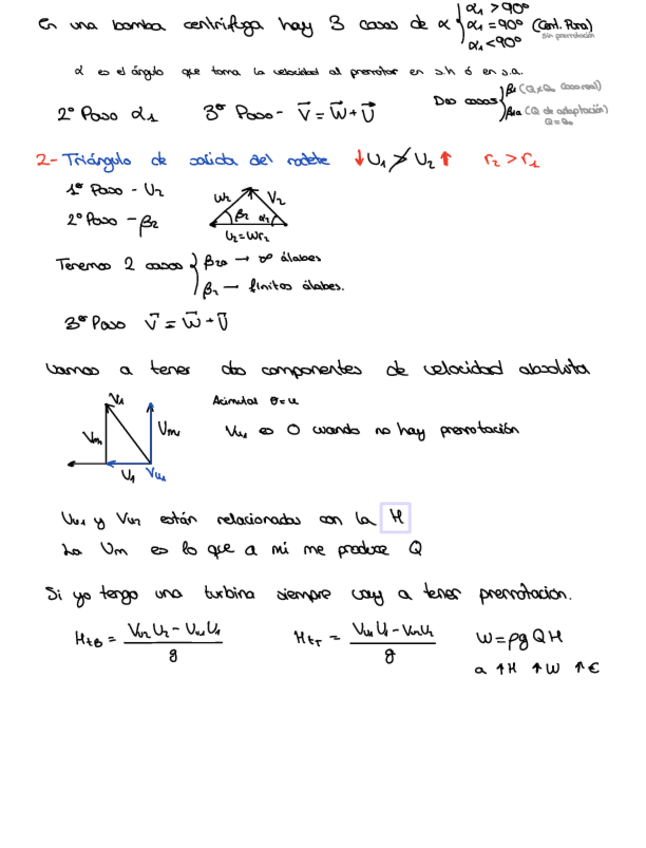 En una bomba centrífuga hay 3 casos de α { α1 > 90º
α1 = 90º (Cent. Pura)
sin prerrotación
α1 < 90º
α es el ángulo que toma la velocidad al prerrotor en s.h ó en s.a.
2º Paso α1 3er Paso - V⃗ = W⃗ + U⃗ Dos casos { β1 (Q≠Qo Caso real)
β1a (Q de adaptación)
Q = Qo
2- Triángulo de salida del rodete ↓U1 ≯ U2↑ r2 > r1
1er Paso - U2
2º Paso - β2
W2 V2
β2 α2
U2 = Wr2
Tenemos 2 casos { β2∞ → ∞ álabes
β2 → finitos álabes.
3er Paso V⃗ = W⃗ + U⃗
Vamos a tener dos componentes de velocidad absoluta
V1
Vm Vm1
U1 Vu1
Acimutal θ = u
Vu1 es 0 cuando no hay prerrotación
Vu1 y Vu2 están relacionadas con la H
La Vm es lo que a mi me produce Q
Si yo tengo una turbina siempre voy a tener prerrotación.
HtB = (Vu2 U2 - Vu1 U1) / g HtT = (Vu1 U1 - Vu2 U2) / g W = ρgQH
a ↑H ↑W ↑€